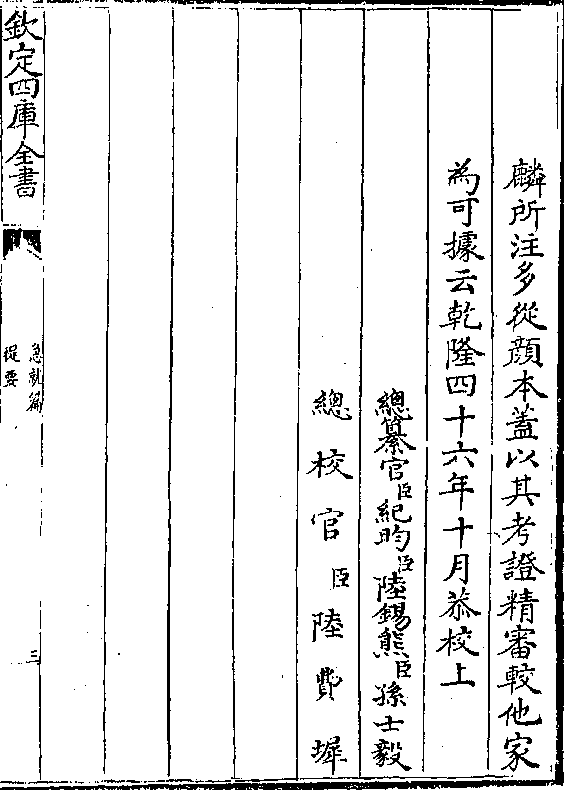 麟所注多從顔本蓋以其考證精審較他家
為可據云乾隆四十六年十月恭校上
總纂官臣紀昀臣陸錫熊臣孫士毅
總校官臣陸費墀
欽定四庫全書
急就篇
提要
三